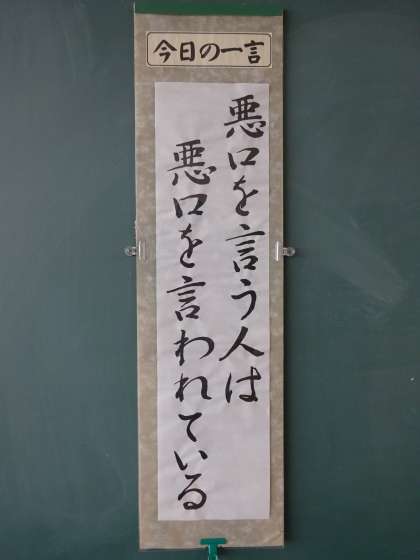 今日の一言
悪口を言う人は
悪口を言われている